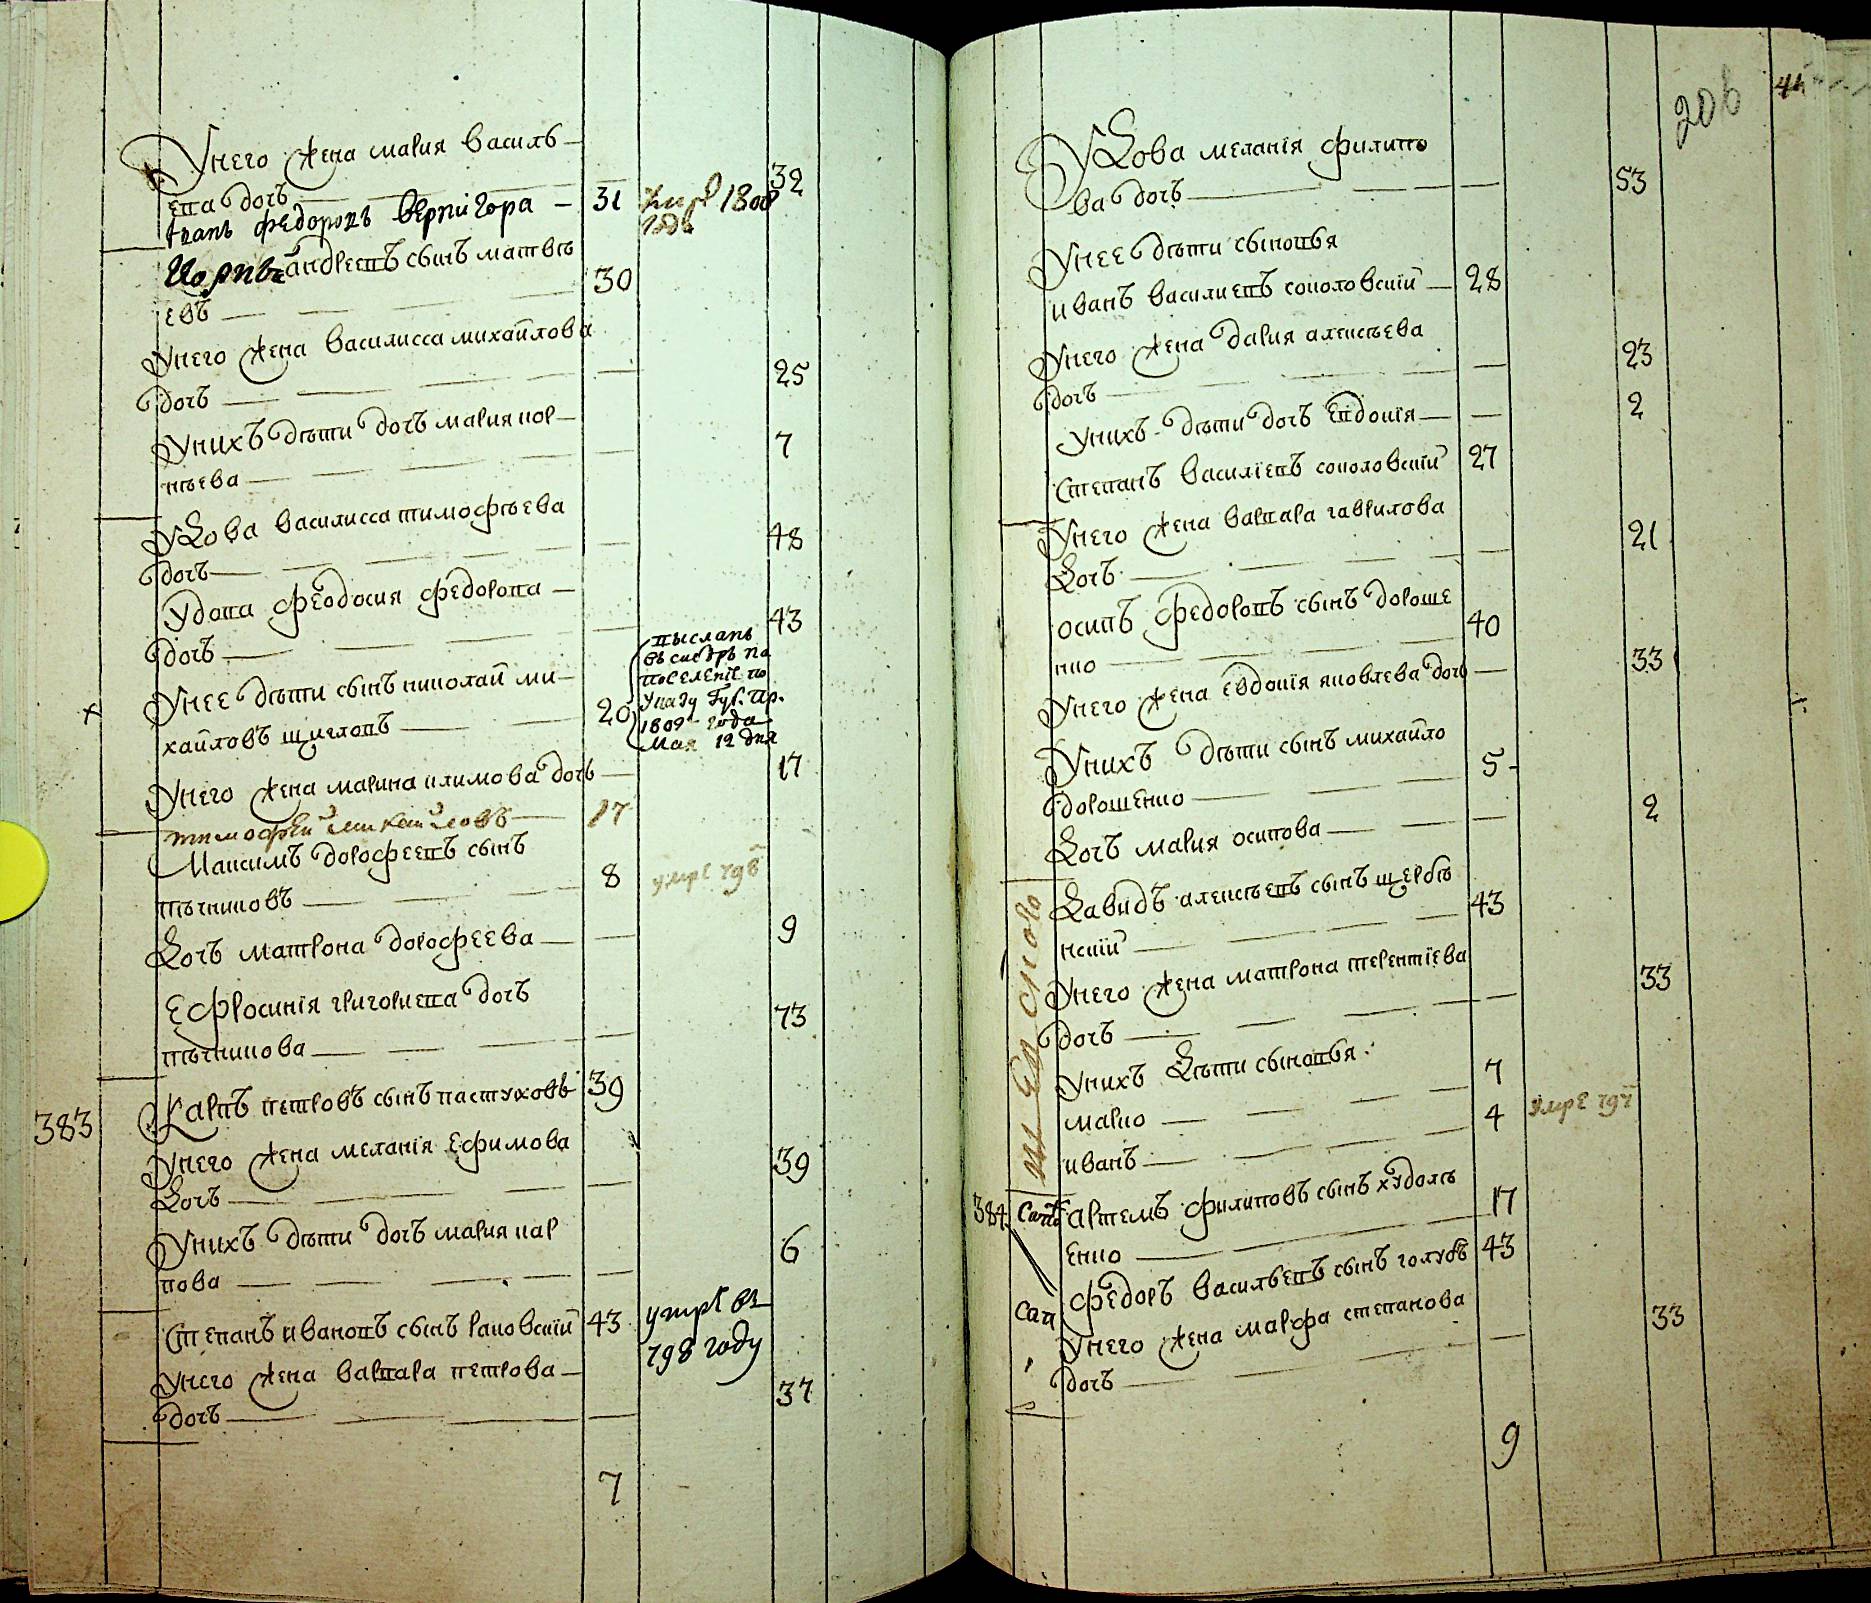 У него жена мария василь
ева дочь 32
иванъ федоровъ вернигора 31 умре 1808
годъ
Корней андреевъ сынъ матвѣ
евъ 30
У него жена василисса михайлова
дочь 25
У нихъ дѣти дочь мария кор
нѣева 7
Удова василисса тимофѣева
дочь 48
Удова феодосия федорова
дочь 43
У нее дѣти сынъ николай ми
хайловъ щегловъ 20
высланъ
въ сибирь на
поселение по
указу Губ. Пр.
1809 года
Мая 12 дня
У него жена марина климова дочь 17
тимофей михайловъ 17
Максимъ дорофеевъ сынъ
пѣчниковъ 8 умре 798
Дочь матрона дорофеева 9
Ефросинія григориева дочь
пѣчникова 73
383 Карпъ петровъ сынъ пастуховъ 39
У него жена меланія ефимова
Дочь 39
У нихъ дѣти дочь мария кар
пова 6
Степанъ ивановъ сынъ раковскій 43 умре въ
798 году
У него жена варвара петрова
дочь 37
7
206
41
Удова меланія филипо
ва дочь 53
У нее дѣти сыновья
иванъ василиевъ соколовскій 28
У него жена дария алексѣева
дочь 23
У нихъ дѣти дочь евдокія 2
Степанъ василіевъ соколовскій 27
У него жена варвара гаврилова
Дочь 21
осипъ федоровъ сынъ дороше
нко 40
У него жена евдокія яковлева дочь 33
У нихъ дѣти сынъ михайло
дорошенко 5
Дочь мария осипова 2
Давидъ алексѣевъ сынъ щербѣ
нскій 43
У него жена матрона терентіева
дочь 33
У нихъ дѣти сыновья
марко 7 умре 797
иванъ 4
384 артемъ филиповъ сынъ худолѣ
енко 17
федоръ васильевъ сынъ голубъ 43
У него жена марфа степанова
дочь 33
9